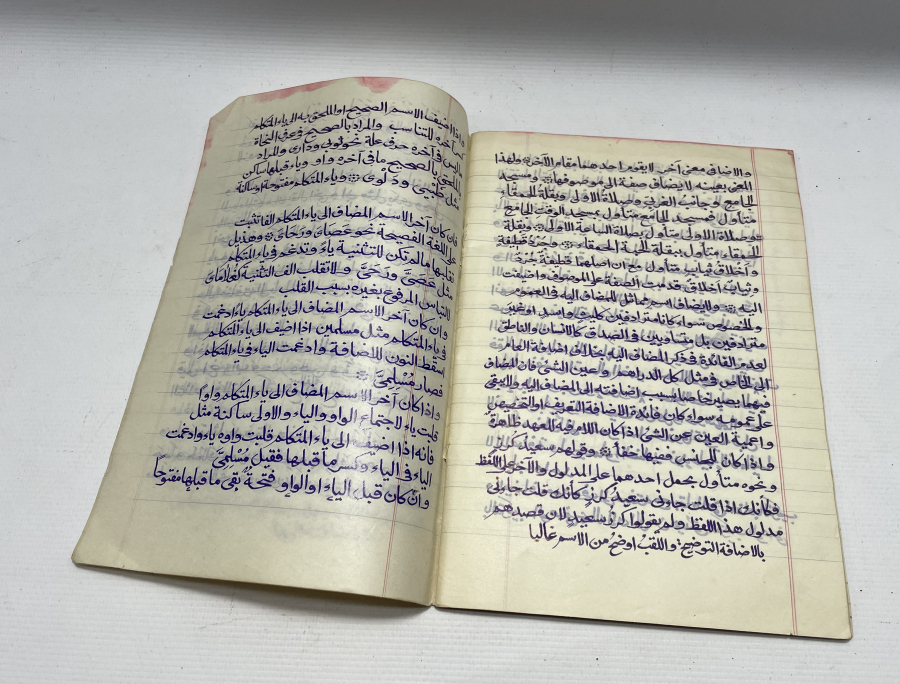 والاضافة معنى آخر لا يقوم احدهما مقام الآخر ولهذا
المعنى بعينه لا يضاف صفة الى موصوفها ومسجد
الجامع وجانب الغربي وصلاة الاولى وبقلة الحمقاء
متأول فمسجد الجامع متأول بمسجد الوقت الجامع
وصلاة الاولى متأول بصلاة الساعة الاولى وبقلة
الحمقاء متأول ببقلة الحبة الحمقاء وجرد قطيفة
واخلاق ثياب متأول مع ان اصلهما قطيفة جرد
وثياب اخلاق قدمت الصفة على الموصوف واضيفت
اليه ولا يضاف اسم مماثل للمضاف اليه في العموم
والخصوص سواء كانا مترادفين كليث واسد او غير
مترادفين بل متساويين في الصدق كالانسان والناطق
لعدم الفائدة في ذكر المضاف اليه بخلاف اضافة العام
الى الخاص في مثل كل الدراهم وعين الشئ فان المضاف
فيهما يصير خاصا بسبب اضافته الى المضاف اليه ولا يبقى
على عمومية سواء كان فائدة الاضافة التعريف او التخصيص
واعمية العين عن الشئ اذا كان اللام فيه للعهد ظاهرة
فاذا كان للجنس ففيها خفأ وقولهم سعيد كرز
ونحوه متأول بحمل احدهما على المدلول والآخر على اللفظ
فكأنك اذا قلت جاءني سعيد كرز كأنك قلت جاءني
مدلول هذا اللفظ ولم يقولوا كرز سعيد لان قصدهم
بالاضافة التوضيح واللقب اوضح من الاسم غالبا
واذا اضيف الاسم الصحيح او الملحق به الى ياء المتكلم
كسر آخره للتناسب والمراد بالصحيح في عرف النحاة
ما ليس في آخره حرف علة نحو ثوبي وداري والمراد
الملحق بالصحيح ما في آخره واو وياء قبلها ساكن
مثل ظبيي ودلوي وياء المتكلم مفتوحة او ساكنة
فان كان آخر الاسم المضاف الى ياء المتكلم الفا تثبت
على اللغة الفصيحة نحو عصاي ورحاي وهذيل
تقلبها ما لم تكن للتثنية ياء وتدغم في ياء المتكلم
مثل عصيّ ورحيّ ولا تقلب الف التثنية كغلاماي
لالتباس المرفوع بغيره بسبب القلب
وان كان آخر الاسم المضاف الى ياء المتكلم ياء ادغمت
في ياء المتكلم مثل مسلمين اذا اضيف الى ياء المتكلم
اسقط النون للاضافة وادغمت الياء في ياء المتكلم
فصار مُسْلِميّ
واذا كان آخر الاسم المضاف الى ياء المتكلم واوا
قلبت ياء لاجتماع الواو والياء والاولى ساكنة مثل
فانه اذا اضيف الى ياء المتكلم قلبت واوه ياء وادغمت
الياء في الياء وكسر ما قبلها فقيل مُسْلميّ
وان كان قبل الياء او الواو فتحة بُقى ما قبلها مفتوحاً